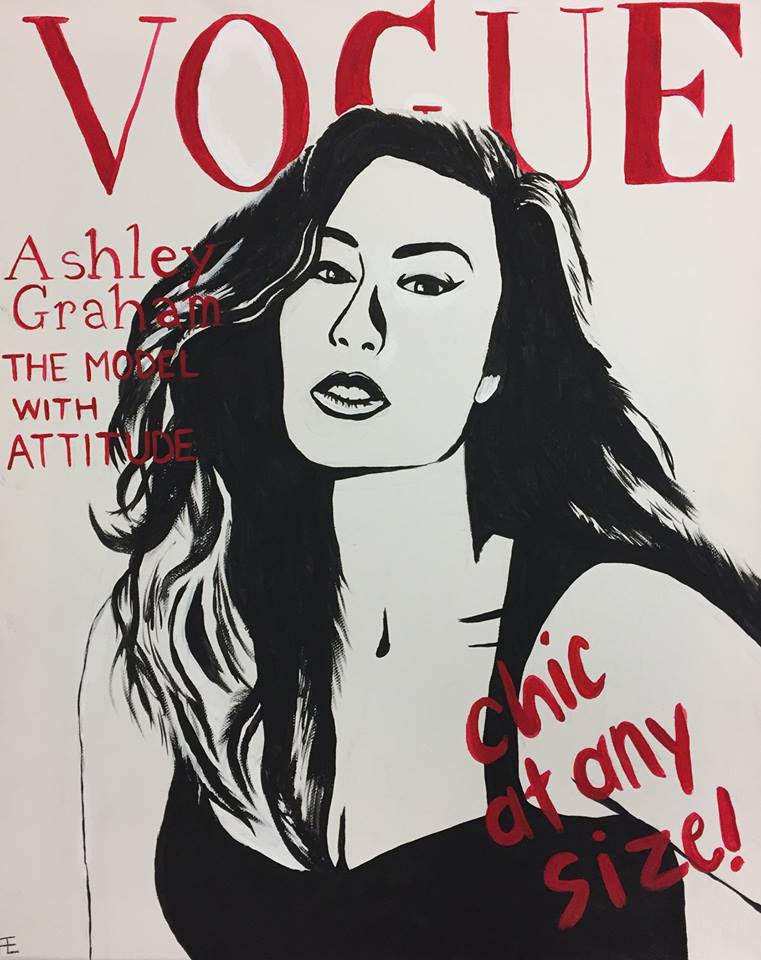 VOGUE
Ashley
Graham
THE MODEL
WITH
ATTITUDE
chic
at any
size!